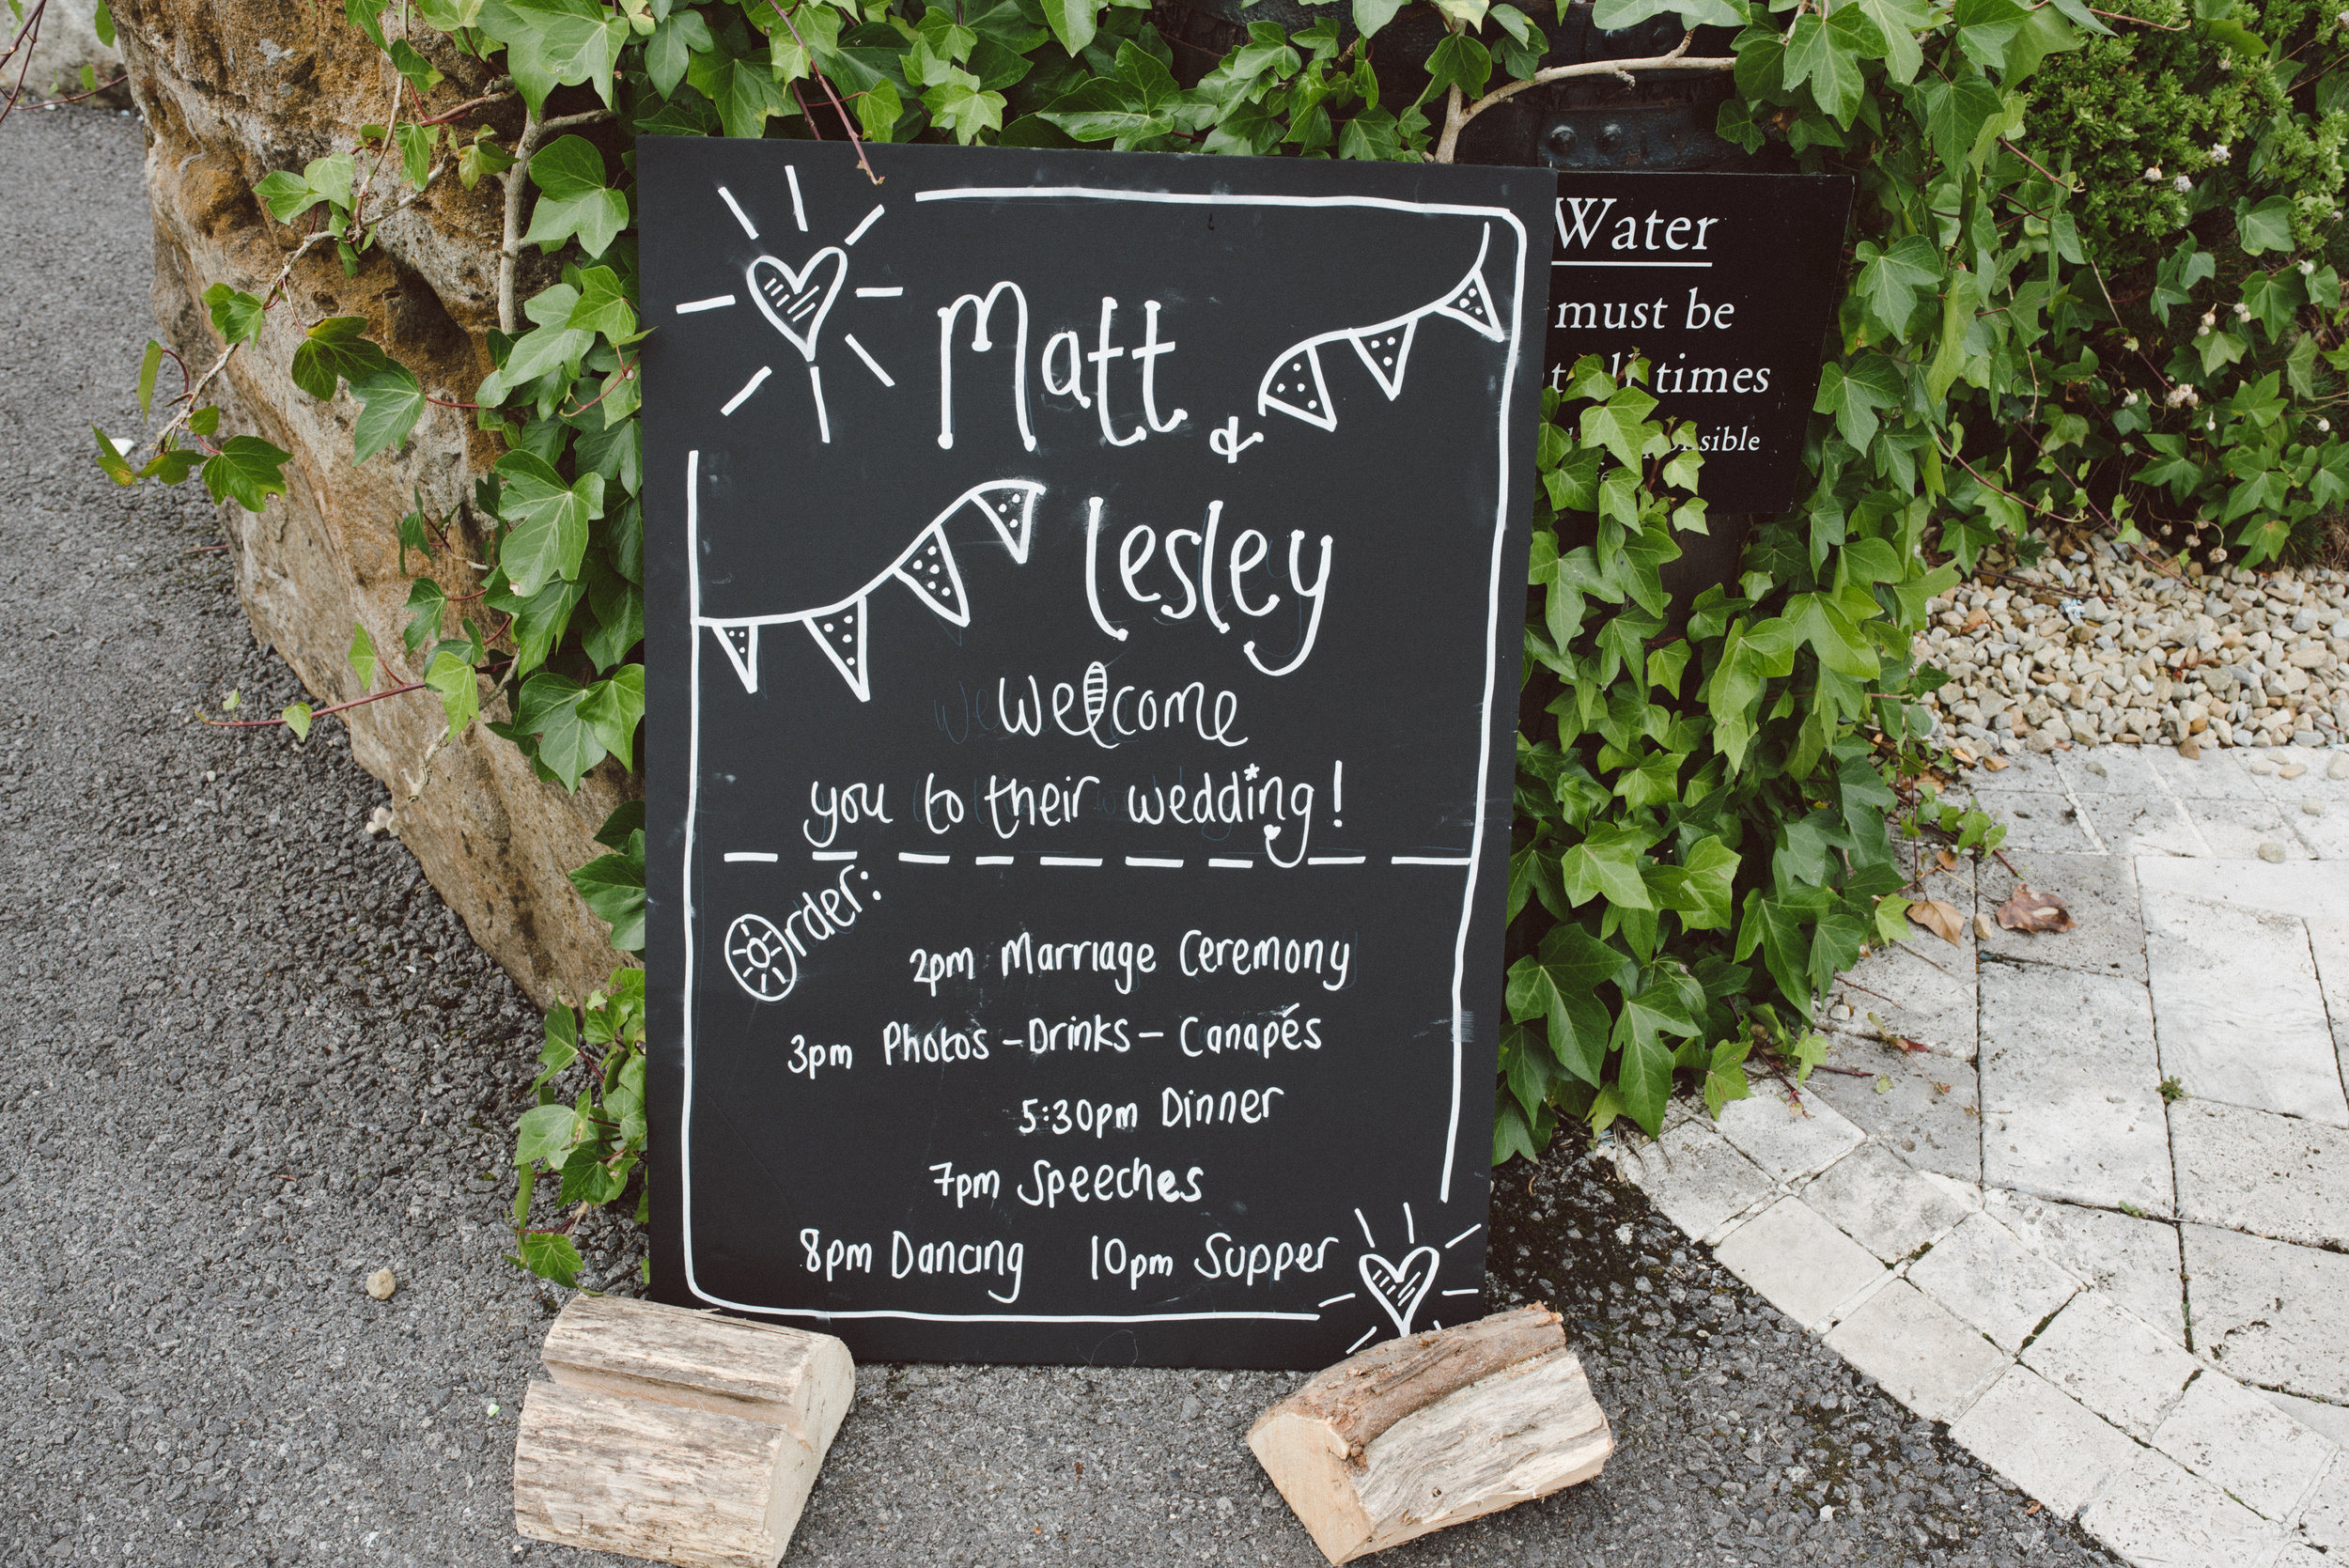 Matt
&
Lesley
welcome
you to their wedding!
Order:
2pm Marriage Ceremony
3pm Photos - Drinks - Canapés
5:30pm Dinner
7pm Speeches
8pm Dancing 10pm Supper
Water
must be
times